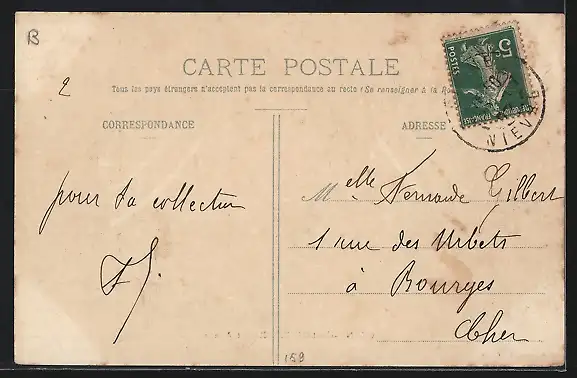 B
2
CARTE POSTALE
Tous les pays étrangers n'acceptent pas la correspondance au recto (Se renseigner à la
CORRESPONDANCE
ADRESSE
5c
POSTES
NIÈV
pour ta collection
Melle Fernande Gilbert
1 rue des
à Bourges
Cher
159